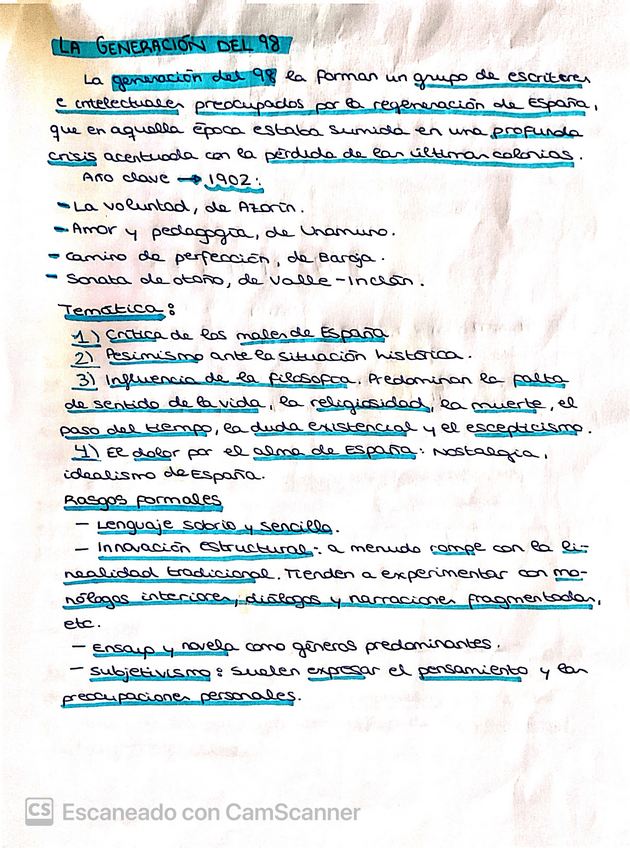 LA GENERACIÓN DEL 98
La generación del 98 la forman un grupo de escritores
e intelectuales preocupados por la regeneración de España,
que en aquella época estaba sumida en una profunda
crisis acentuada con la pérdida de las últimas colonias.
Año clave → 1902:
- La voluntad, de Azorín.
- Amor y pedagogía, de Unamuno.
- Camino de perfección, de Baroja.
- Sonata de otoño, de Valle-Inclán.
Temática:
1) Crítica de los males de España
2) Pesimismo ante la situación histórica.
3) Influencia de la filosofía. Predominan la falta
de sentido de la vida, la religiosidad, la muerte, el
paso del tiempo, la duda existencial y el escepticismo.
4) El dolor por el alma de España: Nostalgia,
idealismo de España.
Rasgos formales
- Lenguaje sobrio y sencillo.
- Innovación estructural: a menudo rompe con la li-
nealidad tradicional. Tienden a experimentar con mo-
nólogos interiores, diálogos y narraciones fragmentadas,
etc.
- Ensayo y novela como géneros predominantes.
- Subjetivismo: Suelen expresar el pensamiento y las
preocupaciones personales.
CS Escaneado con CamScanner